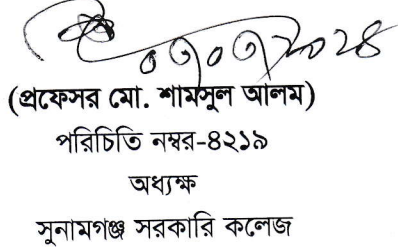 (প্রফেসর মো. শামসুল আলম)
পরিচিতি নম্বর-৪২১৯
অধ্যক্ষ
সুনামগঞ্জ সরকারি কলেজ